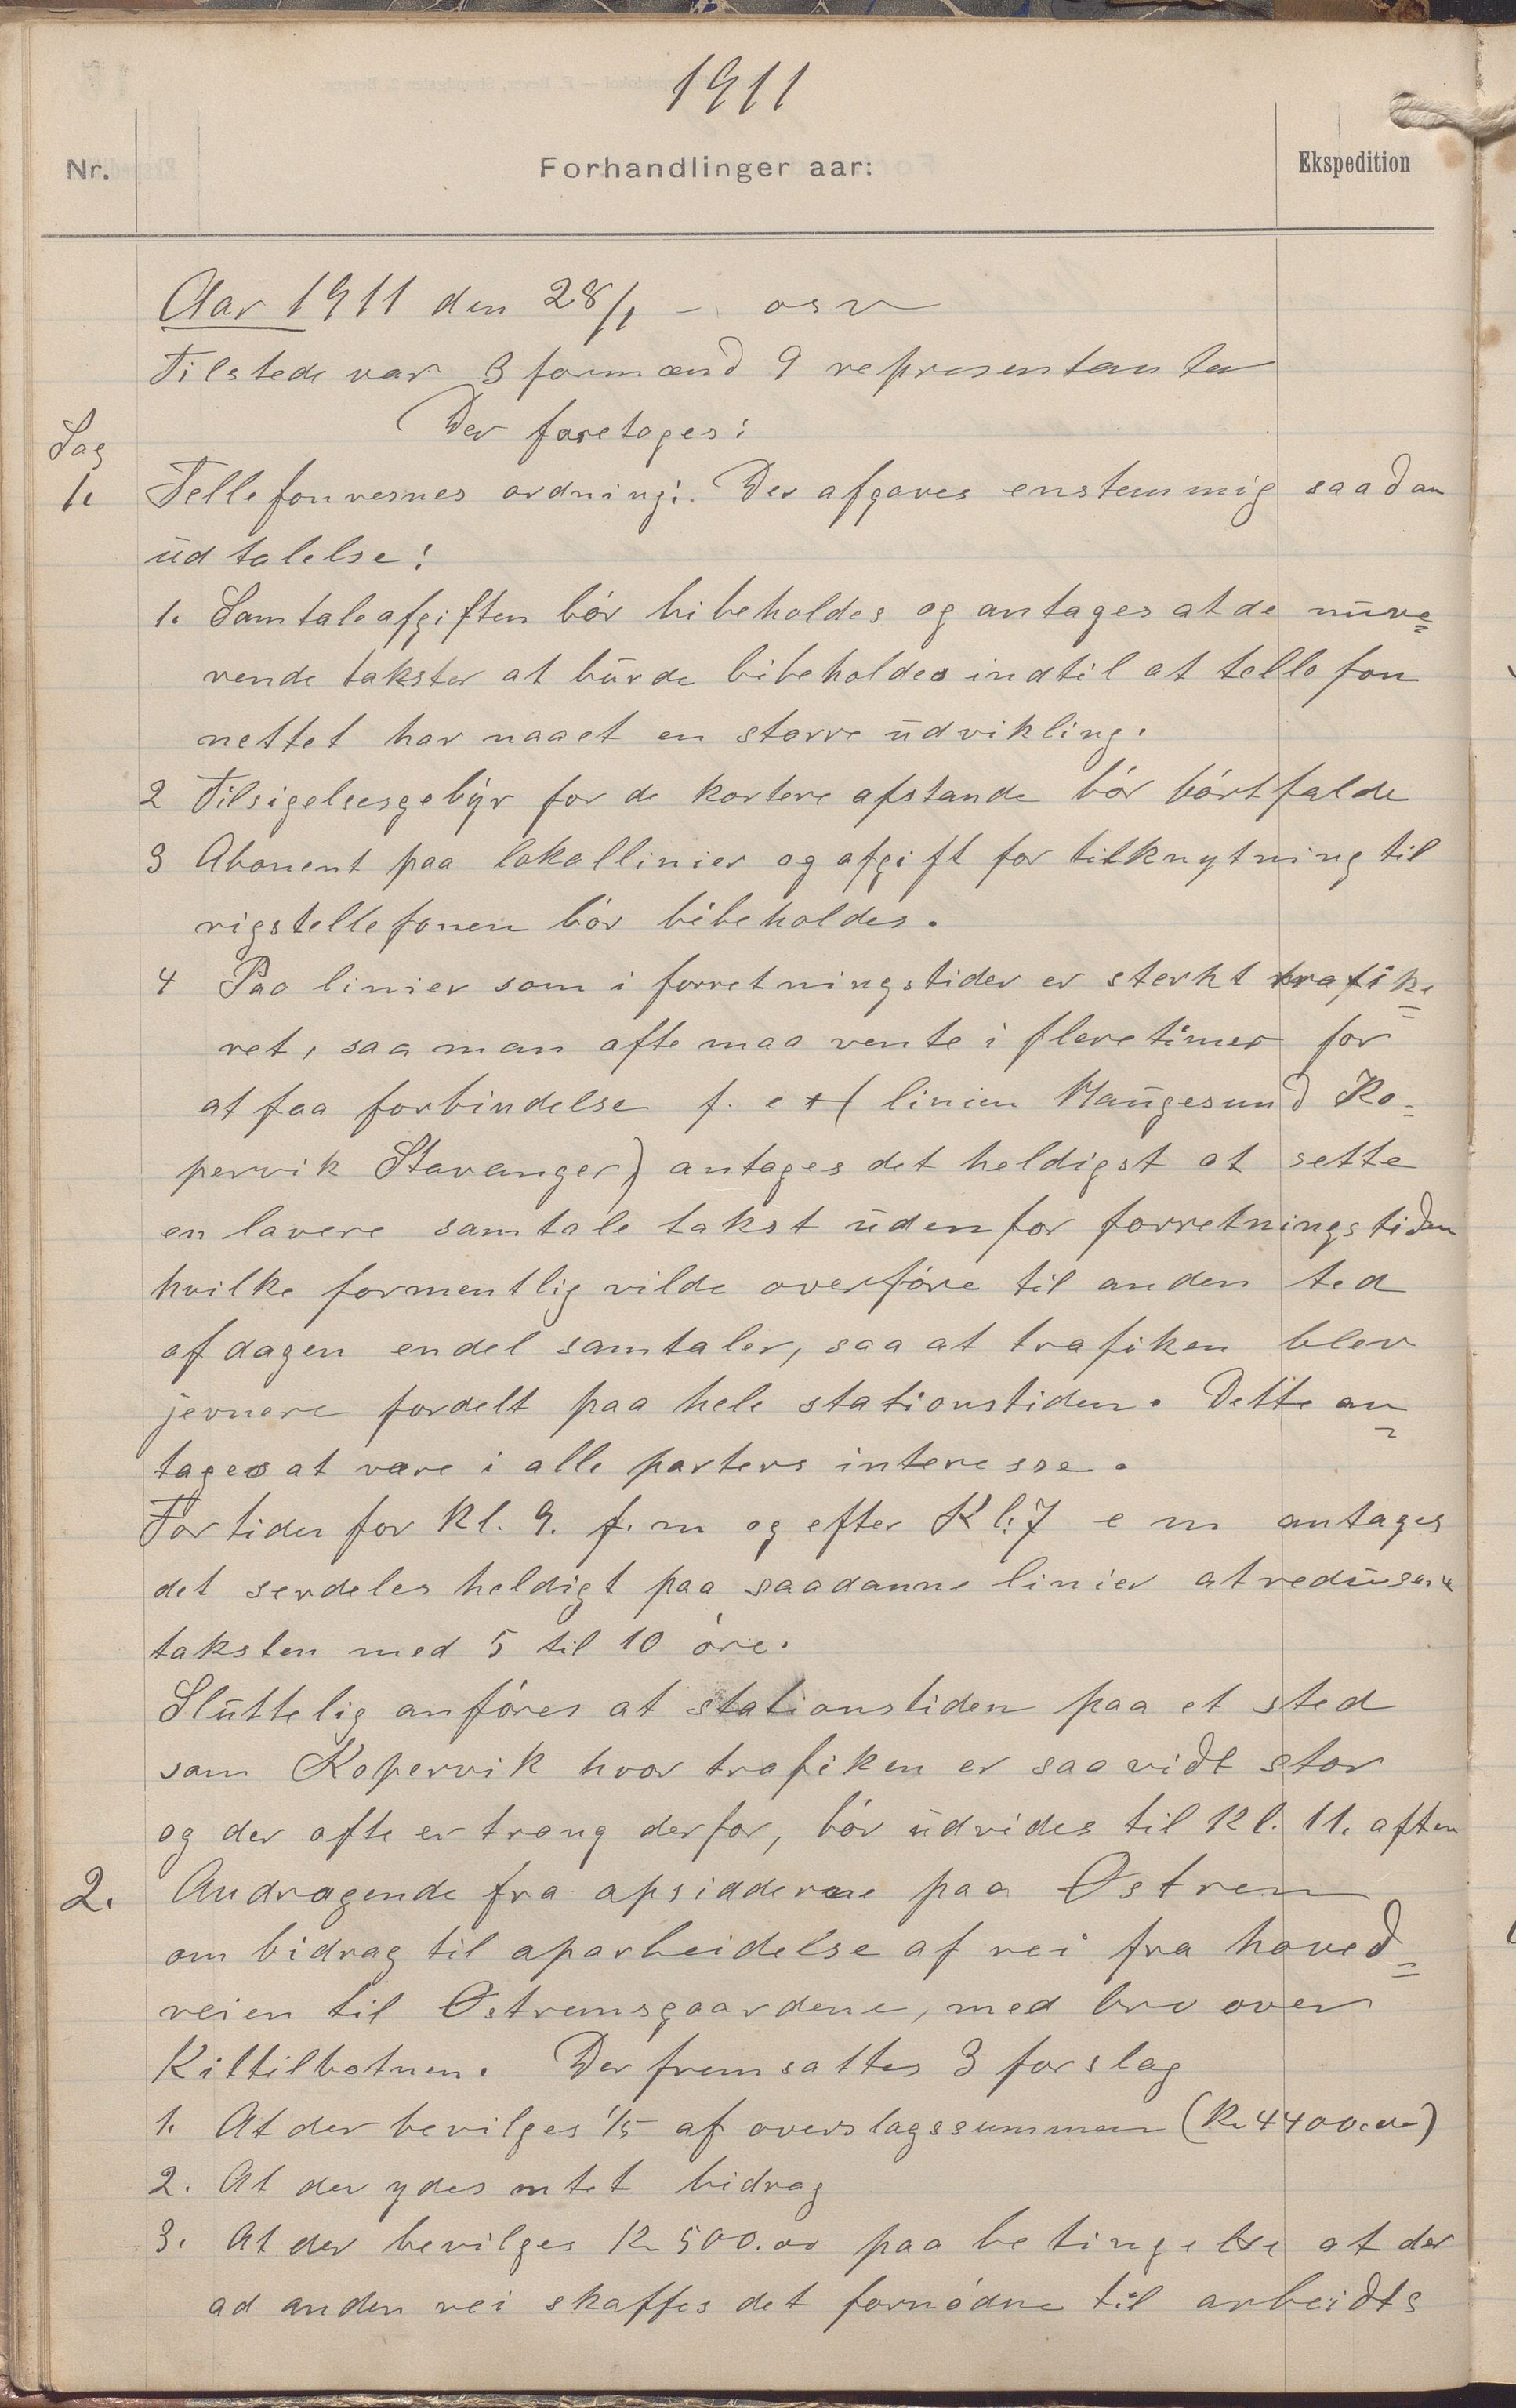 1911
Nr.
Forhandlinger aar:
Ekspedition
Aar 1911 den 28/1 – osv
Tilstede var 3 formænd 9 representanter
Der foretoges:
Sag
1. Tellefonvesnes ordning: Der afgaves enstemmig saadan
udtalelse:
1. Samtaleafgiften bór bibeholdes og antages at de nuve=
rende takster at burde bibeholdes indtil at tellefon
nettet har naaet en storre udvikling.
2 Tilsigelsesgebyr for de kortere afstande bór bórtfalde
3 Abonent paa lokallinier og afgift for tilknytning til
rigstellefonen bór bibeholdes.
4 Paa linier som i forretningstider er sterkt trafike=
ret, saa man ofte maa vente i flere timer for
at faa forbindelse f. ex (linien Haugesund Ko=
pervik Stavanger) antages det heldigst at sette
en lavere samtale takst udenfor forretningstiden
hvilke formentlig vilde overfóre til anden tid
af dagen endel samtaler, saa at trafiken blev
jevnere fordelt paa hele stationstiden. Dette an=
tages at vare i alle parters interesse.
For tiden for Kl. 9. f.m og efter Kl. 7 e m antages
det serdeles heldigt paa saadanne linier at redusere
taksten med 5 til 10 óre.
Sluttelig anfóres at stationstiden paa et sted
som Kopervik hvor trafiken er saavidt stor
og der ofte er trang derfor, bór udvides til Kl. 11. aften
2. Andragende fra opsidderne paa Østrem
om bidrag til oparbeidelse af vei fra hoved=
veien til Østremsgaardene, med bro over
Kittilbotnen. Der fremsattes 3 forslag
1. At der bevilges 1/5 af overslagssummen (Kr 4400.00)
2. At der ydes intet bidrag
3. At der bevilges Kr 500.00 paa betingelse at der
ad anden vei skaffes det fornódne til arbeidts